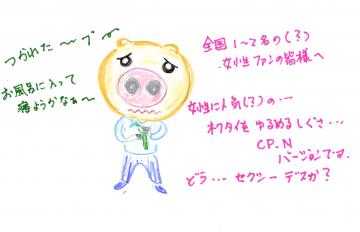 つかれた〜プ〜
お風呂に入って
寝ようかなぁ〜
全国1〜2名の(?)
女性ファンの皆様へ
女性に人気(?)の…
ネクタイをゆるめるしぐさ…
CP.N
バージョンです。
どう…セクシーデスか?